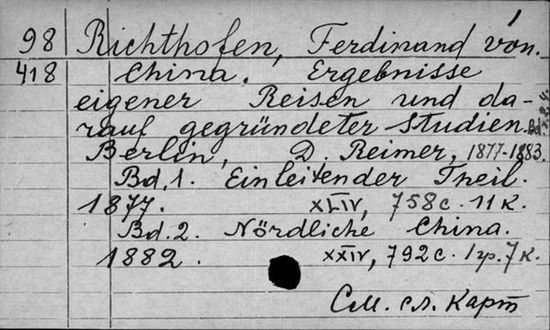 98 Richthofen, Ferdinand von.
418 China. Ergebnisse
eigener Reisen und da-
rauf gegründeter Studien.
Berlin, D. Reimer, 1877-1883.
Bd. 1. Einleitender Theil.
1877. XLIV, 758 с. 11 к.
Bd. 2. Nördliche China.
1882. XXIV, 792 с. 1 гр. 7 к.
См. сл. карт